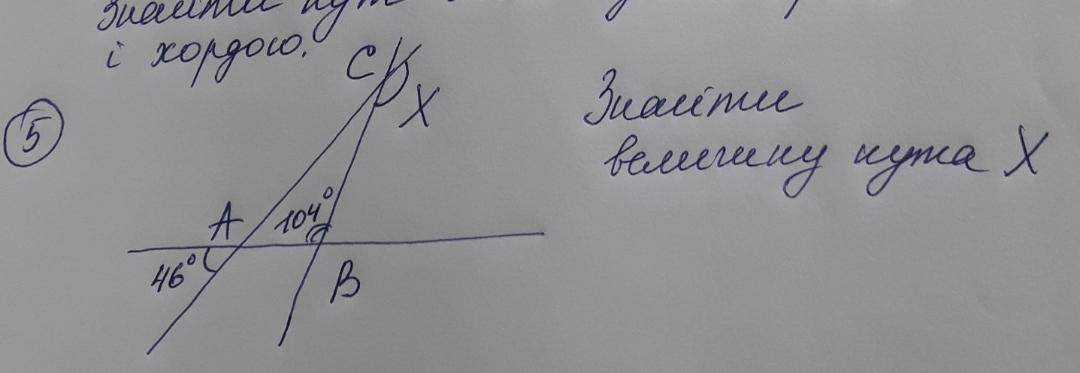 Знайти кут
і хордою.
5
C
X
Знайти
величину кута X
A
104°
46°
B